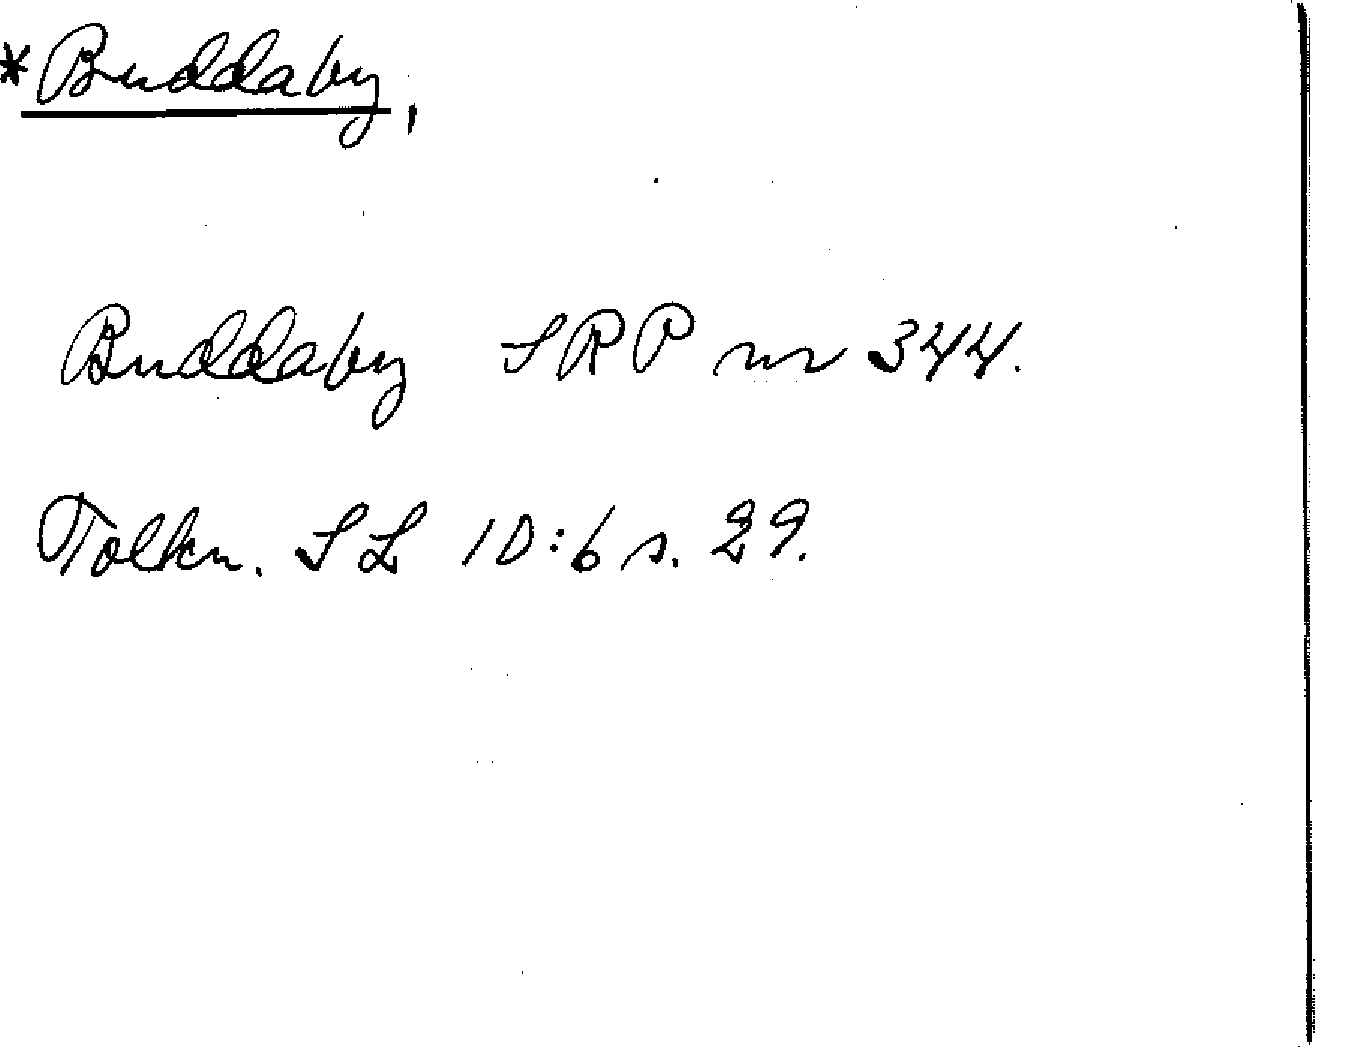 *Buddaby,
Buddaby SRP nr 344.
Tolkn. SL 10:6 s. 29.